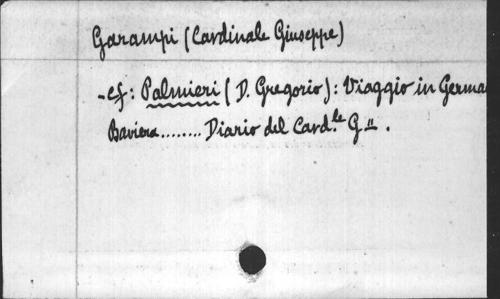 Garampi (Cardinale Giuseppe)
- cf: Palmieri (D. Gregorio): Viaggio in Germa
Baviera........ Diario del Card.le G.